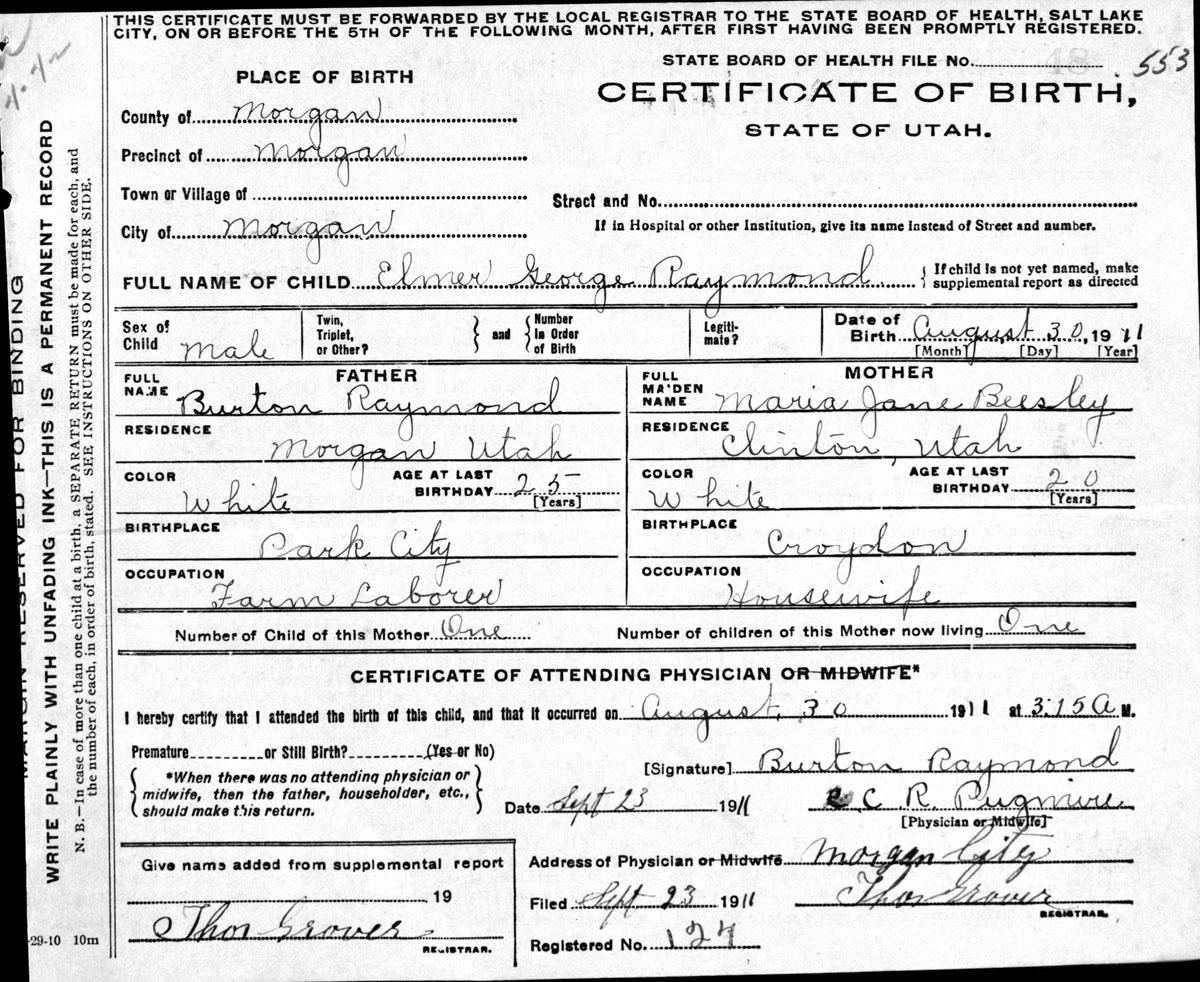 THIS CERTIFICATE MUST BE FORWARDED BY THE LOCAL REGISTRAR TO THE STATE BOARD OF HEALTH, SALT LAKE
CITY, ON OR BEFORE THE 5TH OF THE FOLLOWING MONTH, AFTER FIRST HAVING BEEN PROMPTLY REGISTERED.
STATE BOARD OF HEALTH FILE No. 553
PLACE OF BIRTH
CERTIFICATE OF BIRTH,
STATE OF UTAH.
County of Morgan
Precinct of Morgan
Town or Village of
Street and No.
City of Morgan
If in Hospital or other Institution, give its name instead of Street and number.
FULL NAME OF CHILD Elmer George Raymond
If child is not yet named, make
supplemental report as directed
Sex of
Child Male
Twin,
Triplet,
or Other?
and
Number
in Order
of Birth
Legiti-
mate?
Date of
Birth August 30, 1911
[Month] [Day] [Year]
FATHER
FULL
NAME Burton Raymond
RESIDENCE
Morgan Utah
COLOR
White
AGE AT LAST
BIRTHDAY 25
[Years]
BIRTHPLACE
Park City
OCCUPATION
Farm Laborer
MOTHER
FULL
MAIDEN
NAME Maria Jane Beesley
RESIDENCE
Clinton, Utah
COLOR
White
AGE AT LAST
BIRTHDAY 20
[Years]
BIRTHPLACE
Croydon
OCCUPATION
Housewife
Number of Child of this Mother One Number of children of this Mother now living One
CERTIFICATE OF ATTENDING PHYSICIAN OR MIDWIFE*
I hereby certify that I attended the birth of this child, and that it occurred on August, 30 1911 at 3:15 A M.
Premature or Still Birth? (Yes or No)
*When there was no attending physician or
midwife, then the father, householder, etc.,
should make this return.
[Signature] Burton Raymond
Date Sept 23 1911 C R. Pugmire
[Physician or Midwife]
Give name added from supplemental report
19
Thos Grover
REGISTRAR.
Address of Physician or Midwife Morgan City
Filed Sept 23 1911 Thos Grover
REGISTRAR.
Registered No. 127
-29-10 10m
MARGIN RESERVED FOR BINDING
WRITE PLAINLY WITH UNFADING INK—THIS IS A PERMANENT RECORD
N. B.—In case of more than one child at a birth, a SEPARATE RETURN must be made for each, and
the number of each, in order of birth, stated. SEE INSTRUCTIONS ON OTHER SIDE.